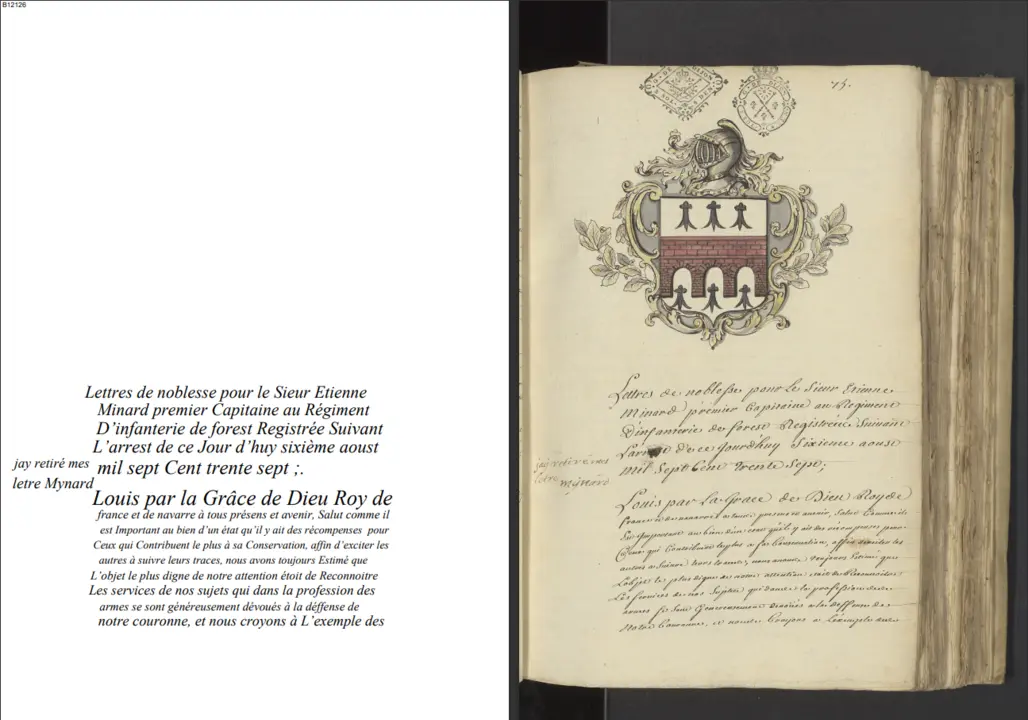 B12126
Lettres de noblesse pour le Sieur Etienne
Minard premier Capitaine au Régiment
D'infanterie de forest Registrée Suivant
L'arrest de ce Jour d'huy sixième aoust
jay retiré mes
mil sept Cent trente sept ;.
letre Mynard
Louis par la Grâce de Dieu Roy de
france et de navarre à tous présens et avenir, Salut comme il
est Important au bien d'un état qu'il y ait des récompenses pour
Ceux qui Contribuent le plus à sa Conservation, affin d'exciter les
autres à suivre leurs traces, nous avons toujours Estimé que
L'objet le plus digne de notre attention étoit de Reconnoitre
Les services de nos sujets qui dans la profession des
armes se sont généreusement dévoués à la déffense de
notre couronne, et nous croyons à L'exemple des
75.
Lettres de noblesse pour Le Sieur Etienne
Minard premier Capitaine au Regiment
D'infanterie de forest Registrée Suivant
L'arrest de ce Jourd'huy Sixieme aoust
jay retiré mes
letre mynard
mil Sept Cent trente Sept;
Louis par La Grace de Dieu Roy de
france et de navarre a tous presens et avenir, Salut Comme il
Est Important au bien d'un état qu'il y ait des récompenses pour
Ceux qui Contribuent le plus a sa Conservation, affin d'exciter les
autres a Suivre leurs traces, nous avons toujours Estimé que
L'objet le plus digne de notre attention étoit de Reconnoitre
Les Services de nos Sujets qui dans la profession des
armes se sont Genereusement devoués a la deffense de
Notre Couronne, et nous Croyons a L'exemple des